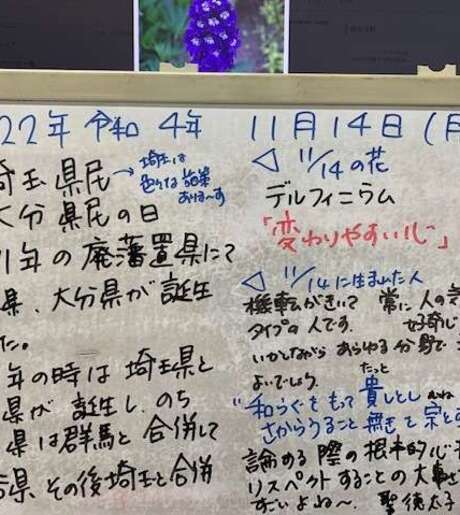 22年 令和 4年 11月14日(月
埼玉県民→埼玉は
色々な施策
ありまーす
大分県民の日
1年の廃藩置県にて
県、大分県が誕生
た。
年の時は埼玉県と
県が誕生し、のち
県は群馬と合併して
県 その後埼玉と合併
◁ 11/14の花
デルフィニウム
「変わりやすい心」
◁ 11/14に生まれた人
機転がきいて 常に人の気
タイプの人です. 好奇心
いかしながら あらゆる分野で
よいでしょう.
たっと
"和らぐをもって貴しとし
さからうこと無きを宗とす
むね
論める際の根本的心
リスペクトすることの大事さ
すごいよね〜. 聖徳太子